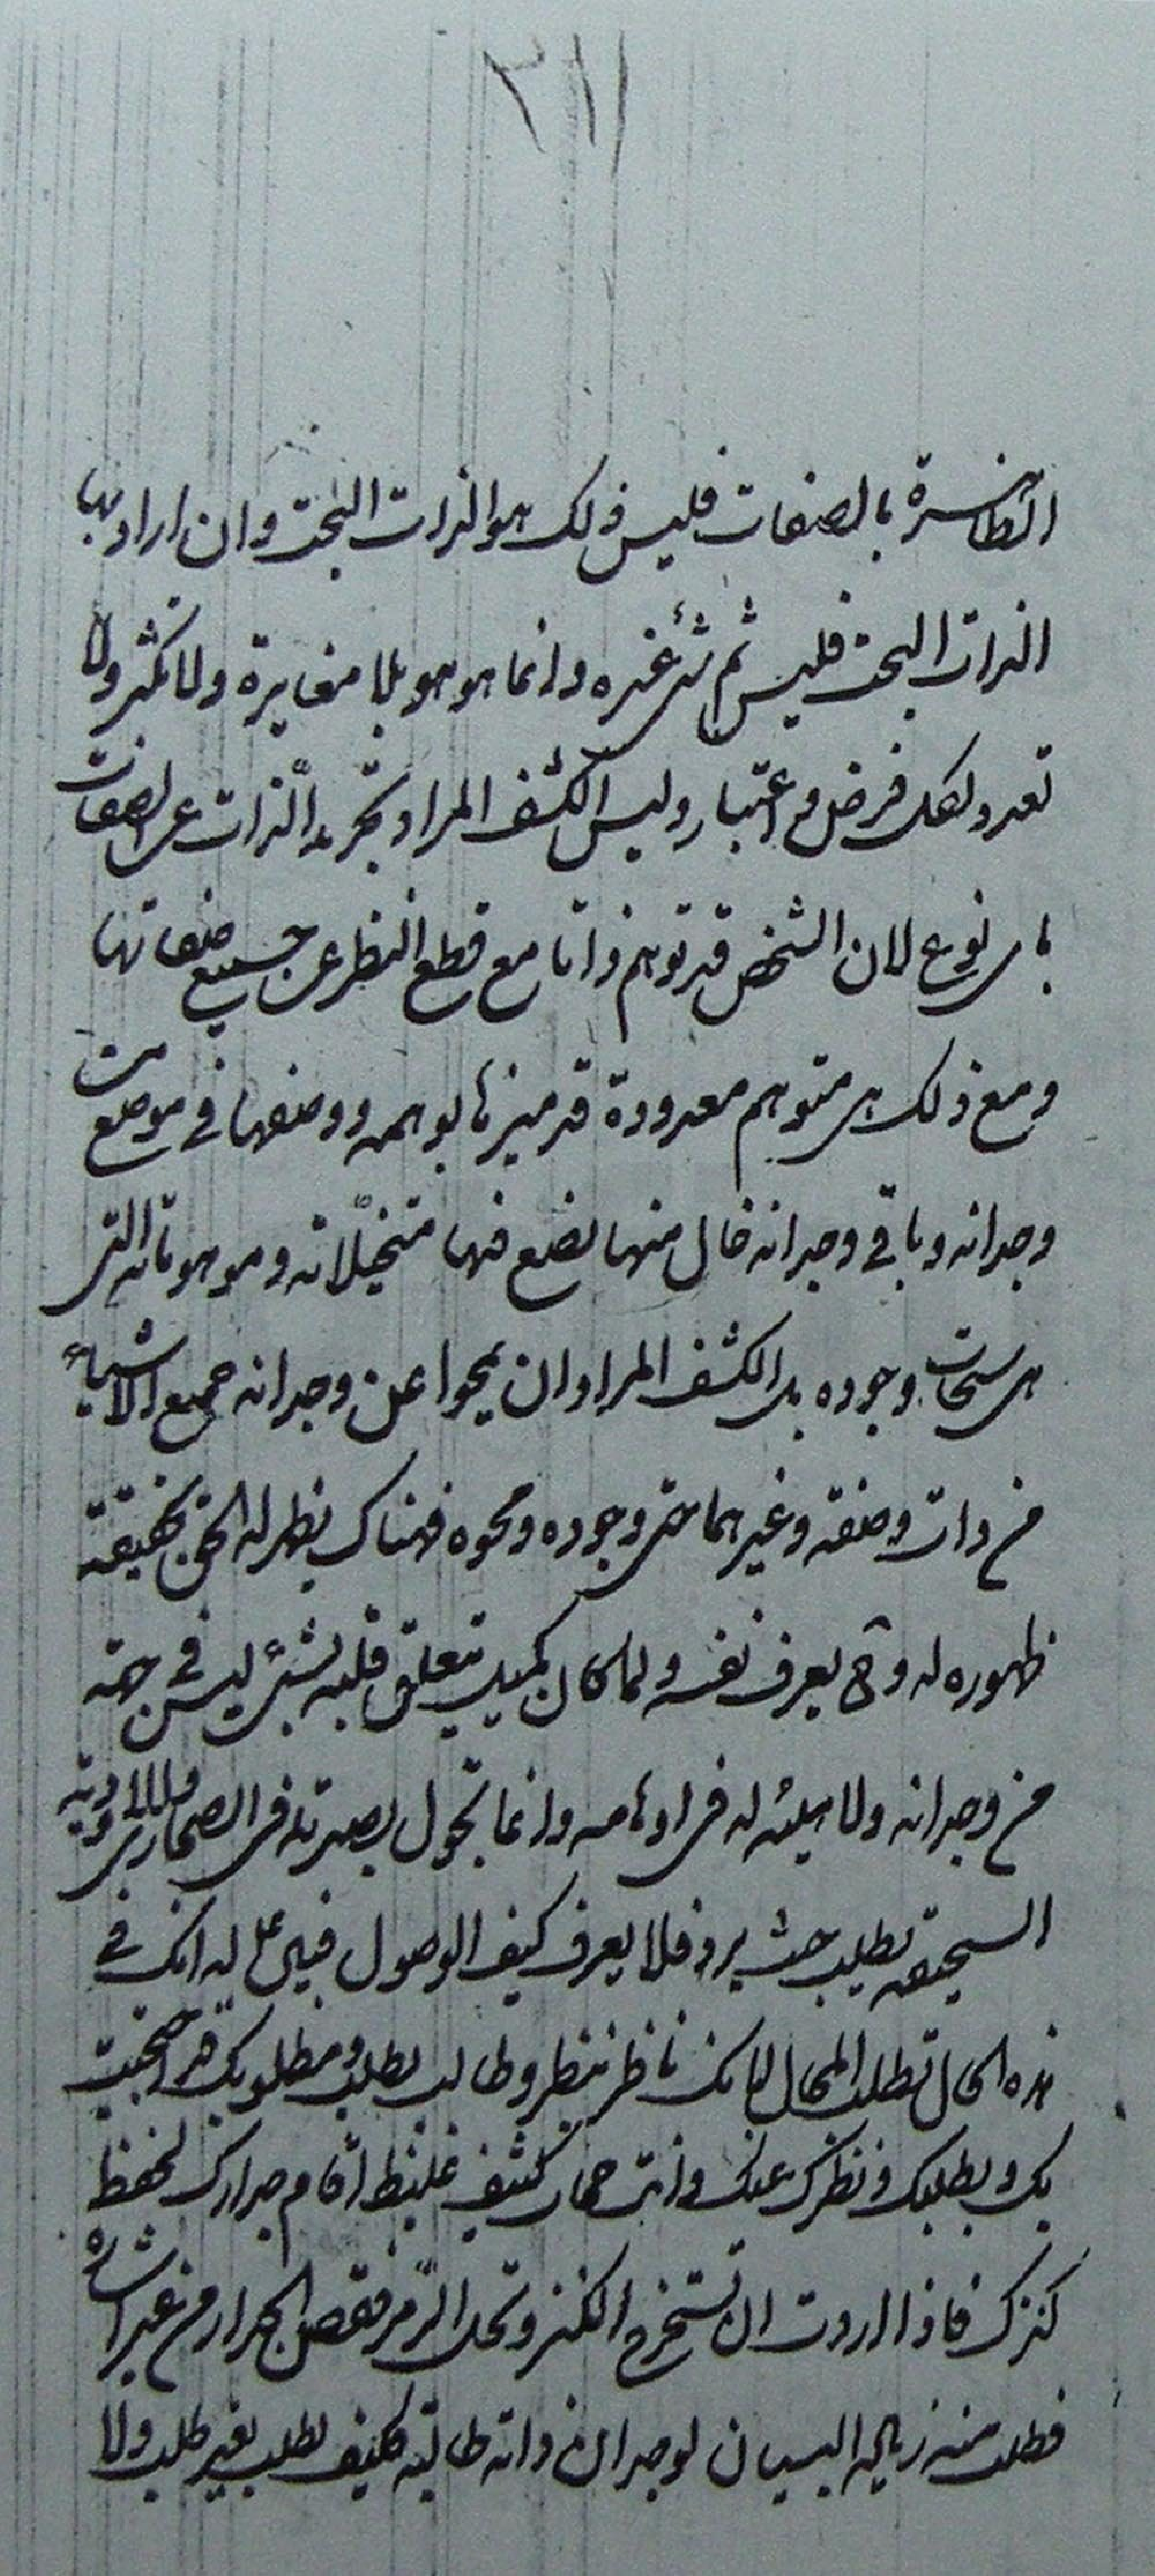 ٢١١
الظاهرة بالصفات فليس ذلك هو الذات البحت وان اراد بها
الذات البحت فليس ثم شئ غيره وانما هو هو بلا مغايرة ولا تكثر ولا
تعدد لكل فرض و اعتبار وليس الكشف المراد تجريد الذات عن الصفات
باى نوع لان الشخص قد توهم ذاتا مع قطع النظر عن جميع صفاتها
ومع ذلك هى متوهم معدودة قد ميزها بوهمه ووضعها في موضع من
وجدانه وباقي وجدانه خال منها يضع فيها متخيلاته وموهوماته التى
هى سبحات وجوده بل الكشف المراد ان يمحوا عن وجدانه جميع الاشياء
من ذات وصفة وغيرهما حتى وجوده ومحوه فهناك يظهر له الحق بحقيقة
ظهوره له و ح يعرف نفسه ولما كان كميل تتعلق قلبه بشئ ليس في جهة
من وجدانه ولا هيئة له فى اوهامه وانما تجول بصيرته فى الصحارى والاودية
السحيقة تطلب حيث يرد فلا يعرف كيف الوصول فقال له انك في
هذه الحال تطلب المحال لانك ناظر بنظر وطالب بطلب ومطلوبك قد احتجب
بك وبطلبك ونظرك عنك وانت حجاب كثيف غليظ اقام جدارك لحفظ
كنزك فاذا اردت ان تستخرج الكنز وتحل الرمز فقص الجدار من غير اشارة
فطلب منه زيادة البيان لوجدان ذاته طالبة كيف يطلب بغير طلب ولا